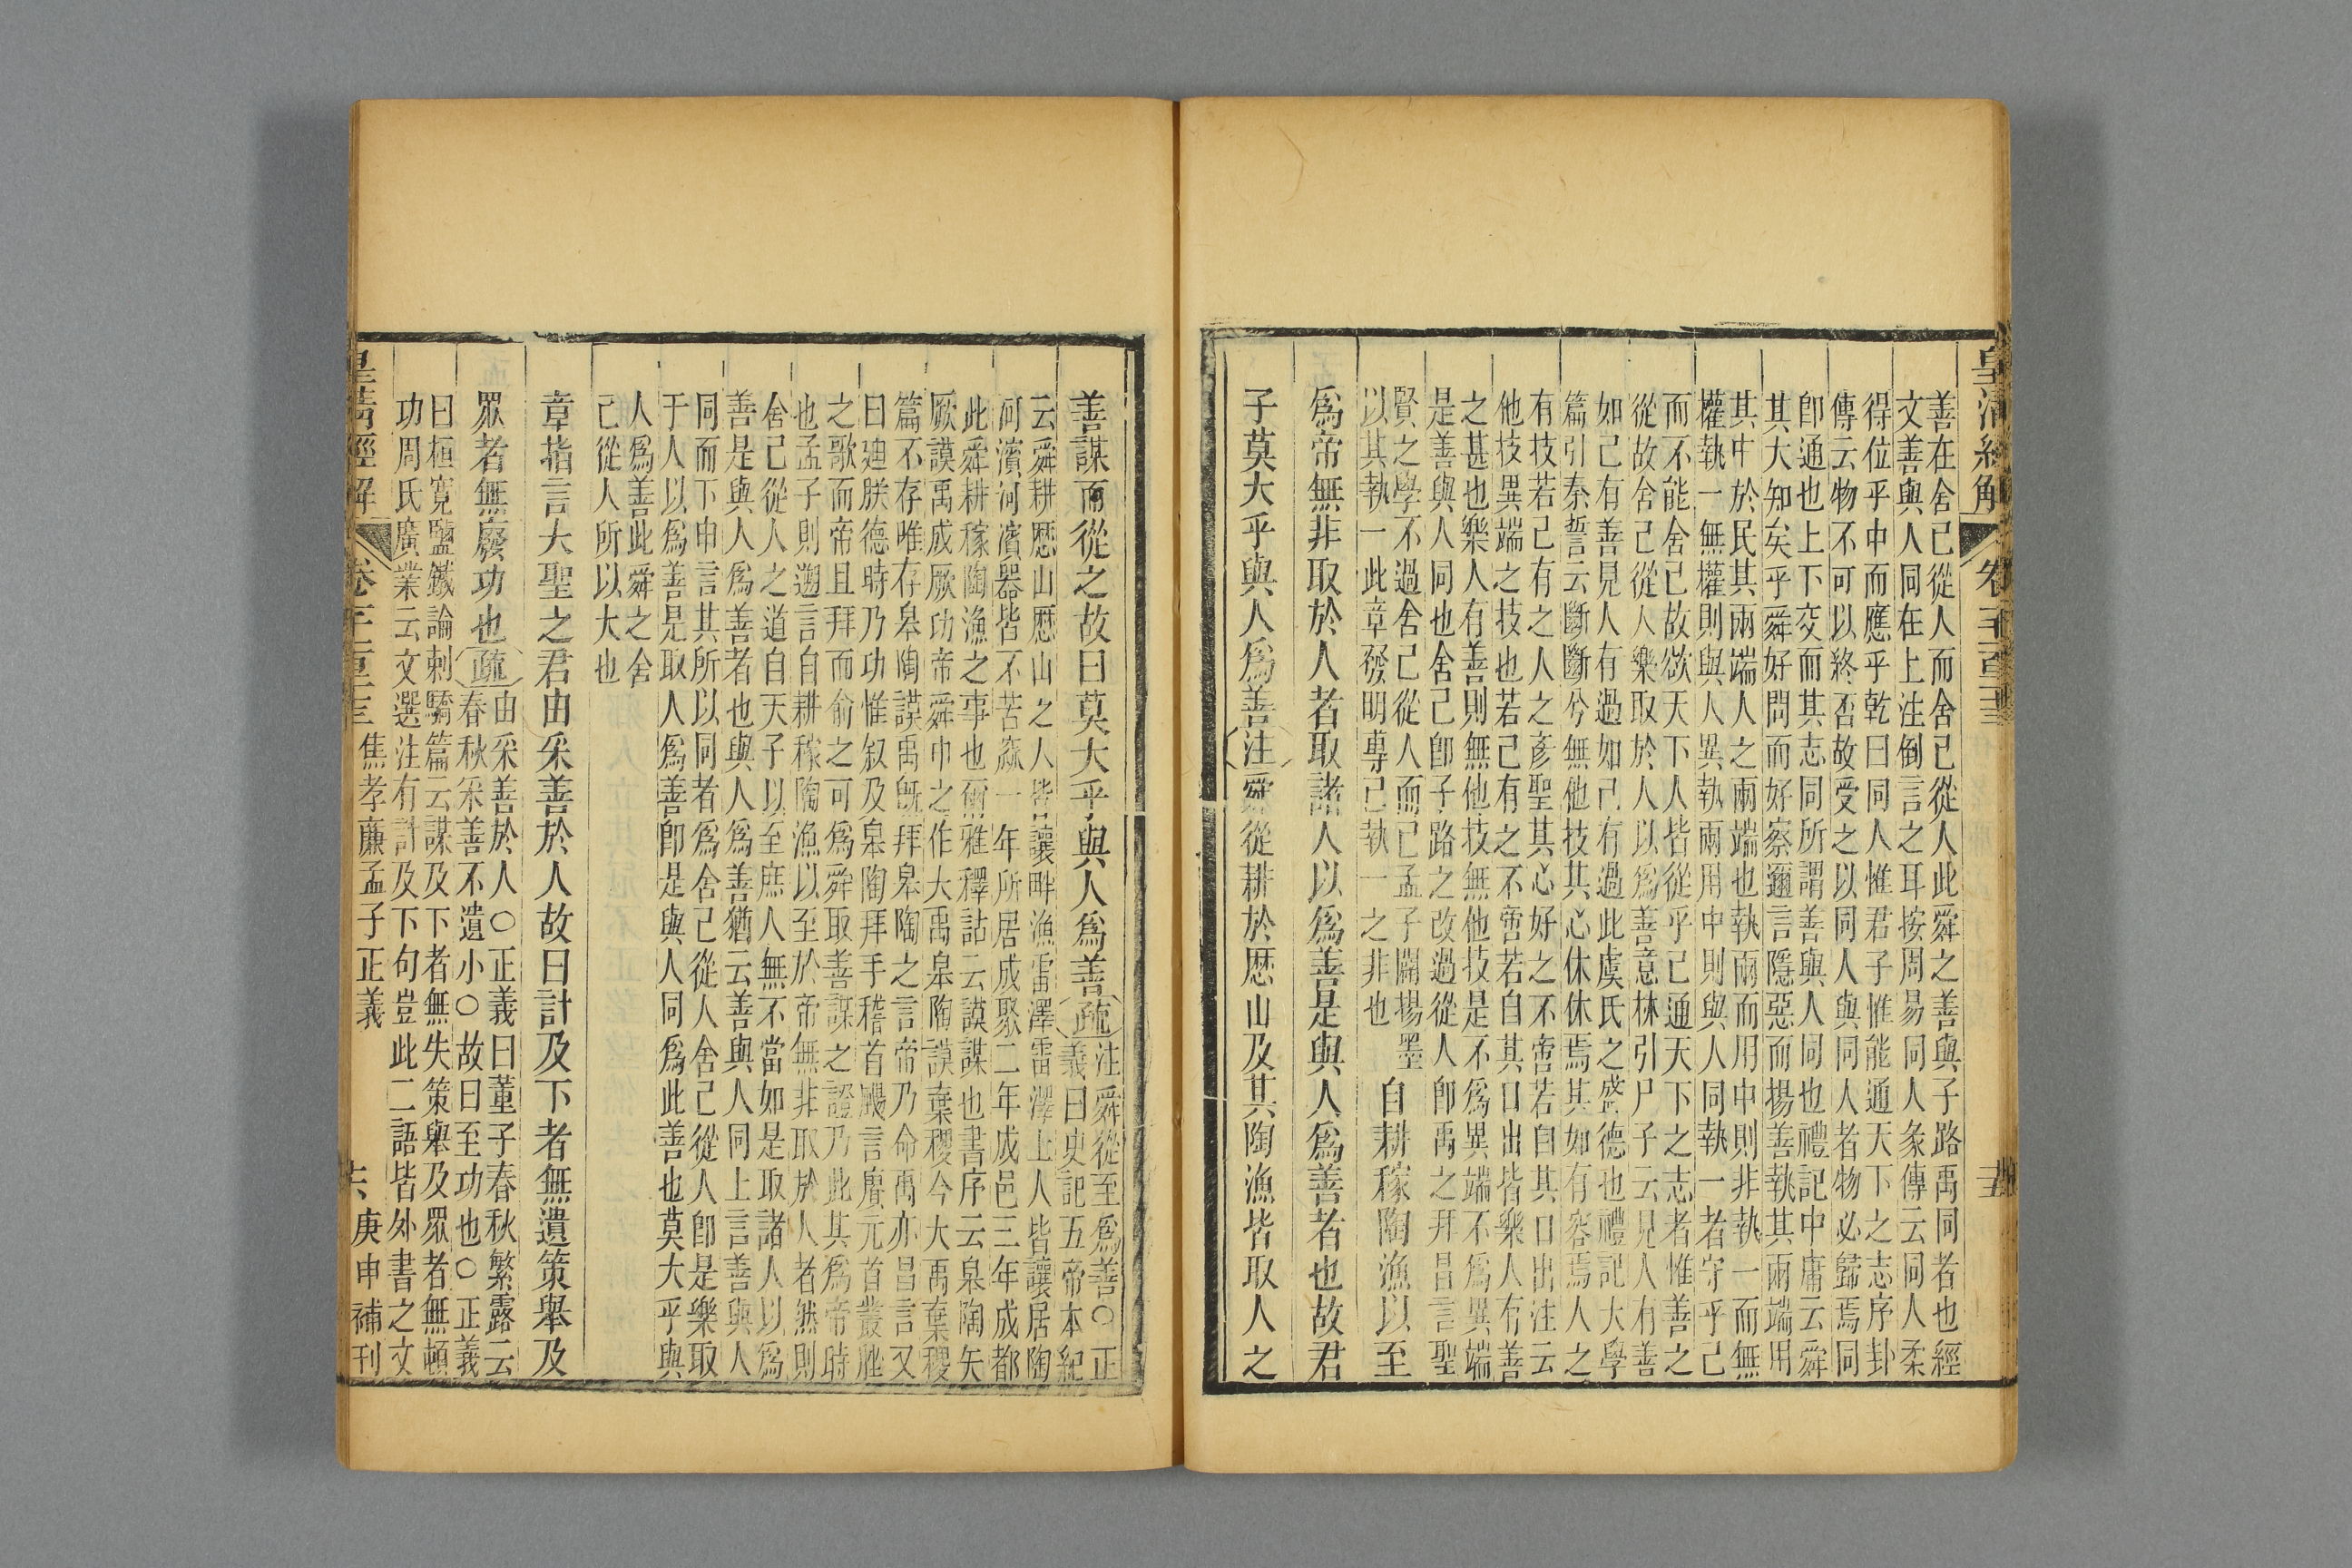 皇淸經解
卷千一百二十三
善在舍己從人而舍己從人此舜之善與子路禹同者也經
文善與人同在上注倒言之耳按周易同人彖傳云同人柔
得位乎中而應乎乾曰同人惟君子惟能通天下之志序卦
傳云物不可以終否故受之以同人與同人者物必歸焉同
卽通也上下交而其志同所謂善與人同也禮記中庸云舜
其大知矣乎舜好問而好察邇言隱惡而揚善執其兩端用
其中於民其兩端人之兩端也執兩而用中則非執一而無
權執一無權則與人異執兩用中則與人同執一者守乎己
而不能舍己故欲天下人皆從乎己通天下之志者惟善之
從故舍己從人樂取於人以爲善意林引尸子云見人有善
如己有善見人有過如己有過此虞氏之盛德也禮記大學
篇引秦誓云斷斷兮無他技其心休休焉其如有容焉人之
有技若己有之人之彥聖其心好之不啻若自其口出注云
他技異端之技也若己有之不啻若自其口出皆樂人有善
之甚也樂人有善則無他技無他技是不爲異端不爲異端
是善與人同也舍己卽子路之改過從人卽禹之拜昌言聖
賢之學不過舍己從人而已孟子闢楊墨
以其執一此章發明專己執一之非也
自耕稼陶漁以至
爲帝無非取於人者取諸人以爲善是與人爲善者也故君
子莫大乎與人爲善注舜從耕於歷山及其陶漁皆取人之
善謀而從之故曰莫大乎與人爲善疏
注舜從至爲善○正
義曰史記五帝本紀
云舜耕歷山歷山之人皆讓畔漁雷澤雷澤上人皆讓居陶
河濱河濱器皆不苦窳一年所居成聚二年成邑三年成都
此舜耕稼陶漁之事也爾雅釋詁云謨謀也書序云皋陶矢
厥謨禹成厥功帝舜申之作大禹皋陶謨棄稷今大禹棄稷
篇不存唯存皋陶謨禹旣拜皋陶之言帝乃命禹亦昌言又
曰廸朕德時乃功惟叙及皋陶拜手稽首颺言賡元首叢脞
之歌而帝且拜而俞之可爲舜取善謀之證乃此其爲帝時
也孟子則遡言自耕稼陶漁以至於帝無非取於人者然則
舍己從人之道自天子以至庶人無不當如是取諸人以爲
善是與人爲善者也與人爲善猶云善與人同上言善與人
同而下申言其所以同者爲舍己從人舍己從人卽是樂取
于人以爲善是取人爲善卽是與人同爲此善也莫大乎與
人爲善此舜之舍
己從人所以大也
章指言大聖之君由采善於人故曰計及下者無遺策舉及
眾者無廢功也疏
由采善於人○正義曰董子春秋繁露云
春秋采善不遺小○故曰至功也○正義
曰桓寬鹽鐵論刺驕篇云謀及下者無失策舉及眾者無頓
功周氏廣業云文選注有計及下句豈此二語皆外書之文
皇淸經解
卷千一百二十三
焦孝廉孟子正義
庚申補刊